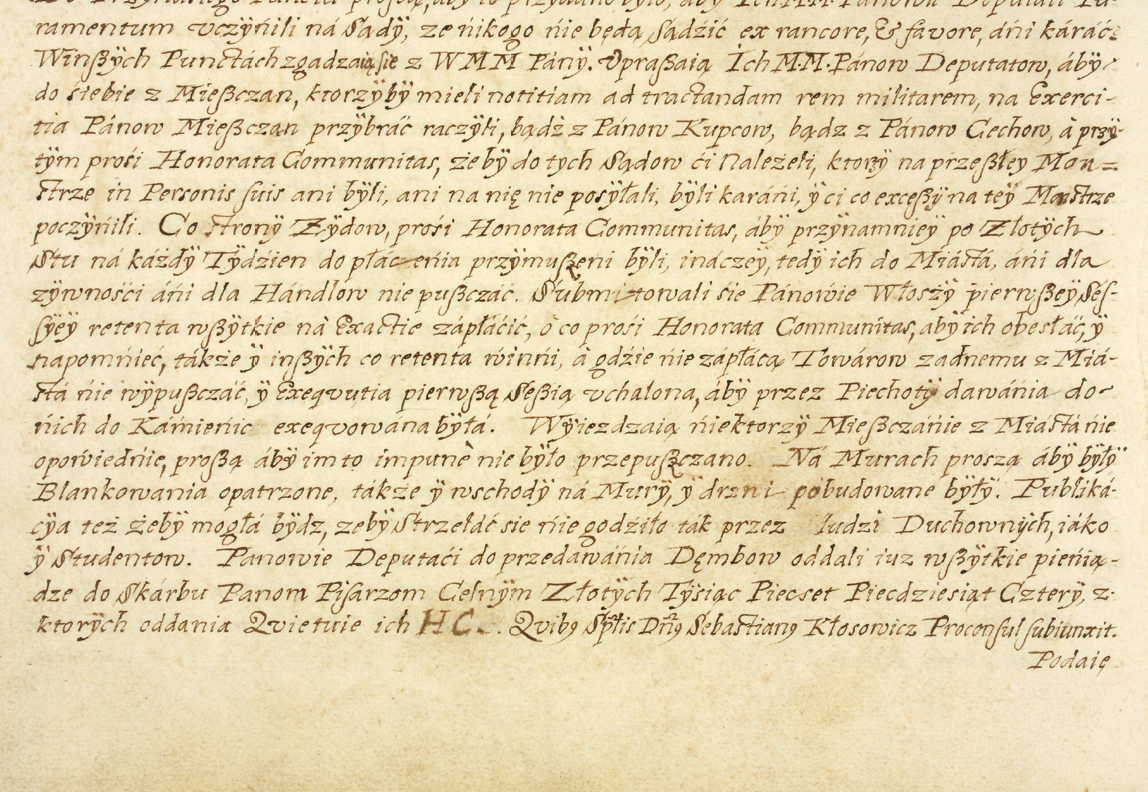 ramentum vczÿńili ná Sądÿ, ze nikogo ńie będą sądzić ex rancore, & fávore, áńi káráć:
Winßÿch Punctách zgadzaią sie z WMM Pánÿ. Vpraßaią Ich M.M. Pánow Deputatow, ábÿ
do siebie z Mießczan, ktorzÿbÿ mieli notitiam ad tractandam rem militarem, na Exerci-
tia Pánow Mießczan przÿbráć raczÿli, bądź z Pánow Kupcow, bądz z Pánow Cechow, à przÿ-
tÿm prośi Honorata Communitas, żebÿ do tych Sądow ći należeli, ktorzÿ na przeßłeÿ Mon=
strze in Personis suis ani bÿli, ani na nię nie posÿłali, bÿli karáńi, ÿ ci co exceßÿ na teÿ Mostrze
poczÿńili. Co strony Zÿdow, prośi Honorata Communitas, ábÿ przÿnamnieÿ po Złotÿch
Stu na káżdÿ Tÿdzien do płáćenia przÿmußęni bÿli, ináczeÿ, tedÿ ich do Miástá, áńi dla
zÿwnośći áńi dla Hándlow nie pußczáć. Submitowali sie Pánowie Włoszÿ pierwßeÿ Ses-
sÿeÿ retenta wßÿtkie ná Exactie zápłáćić, o co prośi Honorata Communitas, abÿ ich obesłáć, ÿ
napomńieć, tákże ÿ inßÿch co retenta winni, à gdźie ńie zápłácą Towárow zadnemu z Miá-
stá ńie wÿpußczáć, ÿ Exeqvutia pierwßą Seßią vchalona, ábÿ przez Piechotÿ dawánia do-
ńich do Kámienic exeqvowana bÿłá. Wÿiezdzaią ńiektorzÿ Mießczáńie z Miástá ńie
opowiednie, proßą ábÿ im to impunè nie bÿło przepußczano. Ná Murach proszą ábÿ bÿłÿ
Blankowania opatrzone, tákże ÿ wschodÿ ná Murÿ, ÿ drzni pobudowane bÿłÿ. Publiká-
cÿa też żebÿ mogłá bÿdz, zebÿ Strzeláć sie ńie godźiło ták przez ludźi Duchownÿch, iáko
ÿ Studentow. Panowie Deputaći do przedáwánia Dębow oddali iuz wßÿtkie pieńią-
dze do Skárbu Panom Pisarzom Celnÿm Złotÿch Tÿsiąc Piecset Piecdziesiąt Cztery, z
ktorÿch oddania Qvietuie ich H C. Qvibꝰ Sptis Dnꝰ Sebastianꝰ Kłosowicz Proconsul subiunxit.
Podaię